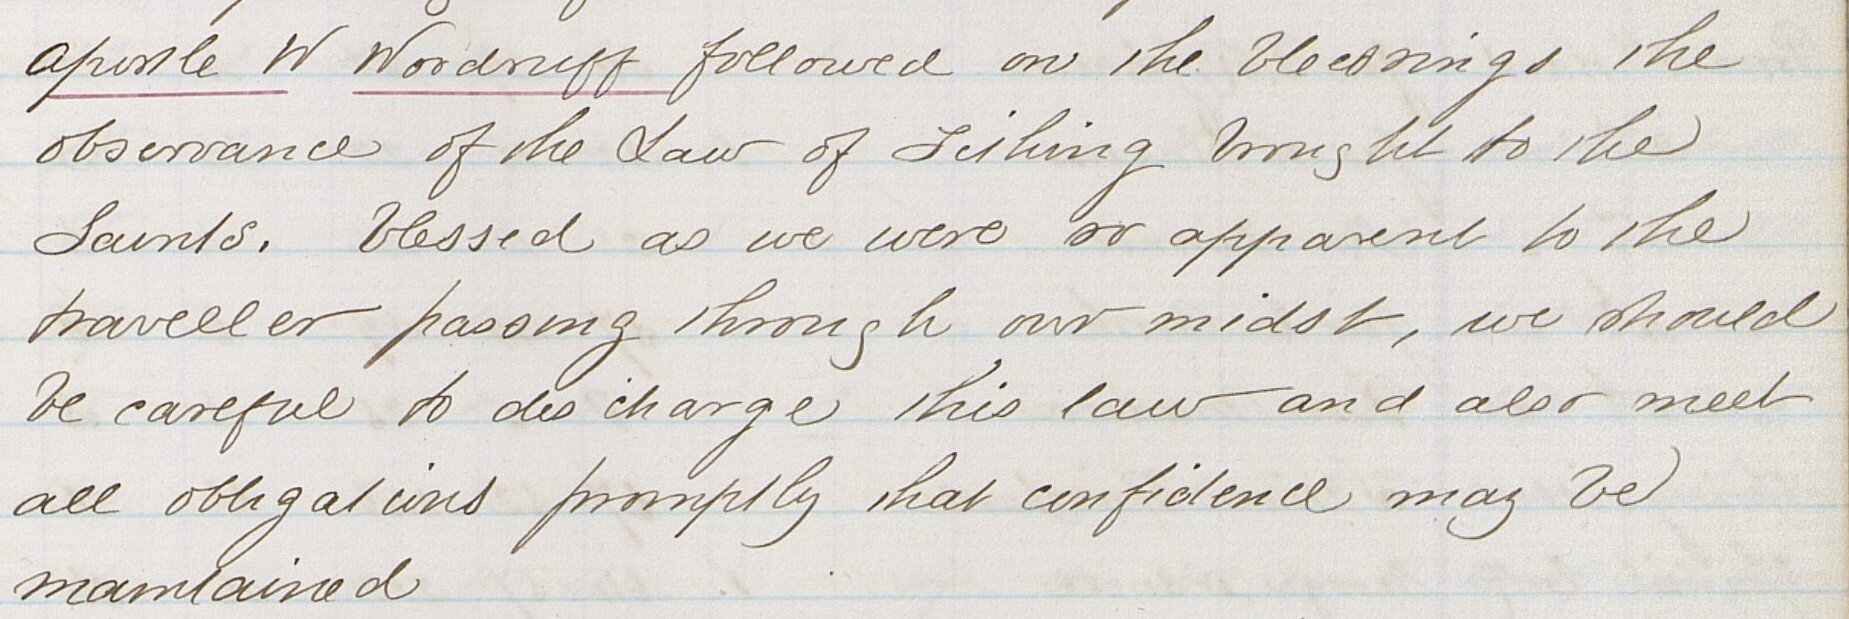 Apostle W Woodruff followed on the blessings the
observance of the Law of Tithing brought to the
Saints. Blessed as we were so apparent to the
traveller passing through our midst, we should
be careful to discharge this law and also meet
all obligations promptly that confidence may be
maintained